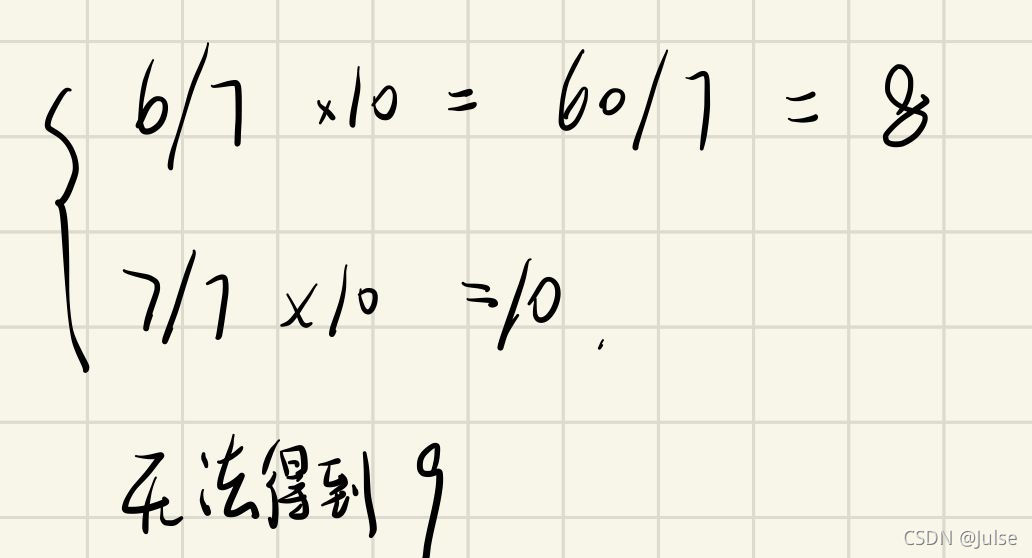 6/7 ×10 = 60/7 = 8
7/7 ×10 =10.
无法得到9
CSDN @Julse